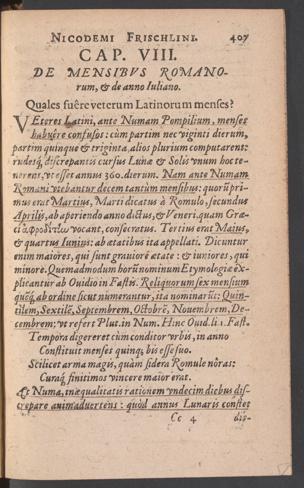 NICODEMI FRISCHLINI. 407
CAP. VIII.
DE MENSIBVS ROMANO-
rum, & de anno Iuliano.
Quales fuêre veterum Latinorum menses?
VEteres Latini, ante Numam Pompilium, menses
habuêre confusos: cùm partim nec viginti dierum,
partim quinque & triginta, alios plurium computarent:
discrepantis cursus Lunæ & Solis vnum hoc te-
nerent, vt esset annus 360. dierum. Nam ante Numam
Romani vtebantur decem tantùm mensibus: quorū pri-
mus erat Martius, Marti dicatus à Romulo, secundus
Aprilis, ab aperiendo anno dictus, & Veneri, quam Græ-
ci vocant, consecratus. Tertius erat Maius,
& quartus Iunius: ab ætatibus ita appellati. Dicuntur
enim maiores, qui sunt grauiore ætate: & iuniores, qui
minore. Quemadmodum horū nominum Etymologiæ ex-
plicantur ab Ouidio in Fastis. Reliquorum sex mensium
ab ordine sicut numerantur, ita nominarūt: Quin-
tilem, Sextilē, Septembrem, Octobrē, Nouembrem, De-
cembrem: vt refert Plut. in Num. Hinc Ouid. li. 1. Fast.
Tempora digereret cùm conditor vrbis, in anno
Constituit menses quinq; bis esse suo.
Scilicet arma magis, quàm sidera Romule nôras:
Curaq; finitimos vincere maior erat.
Et Numa, inæqualitatis rationem vndecim diebus dis-
crepare animaduertens: quòd annus Lunaris constet
Cc 4